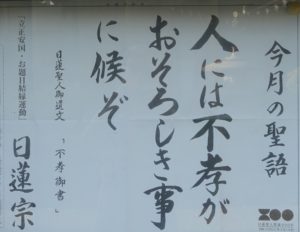 今月の聖語
人には不孝が
おそろしき事
に候ぞ
日蓮聖人御遺文「不孝御書」
「立正安国・お題目結縁運動」
日蓮宗